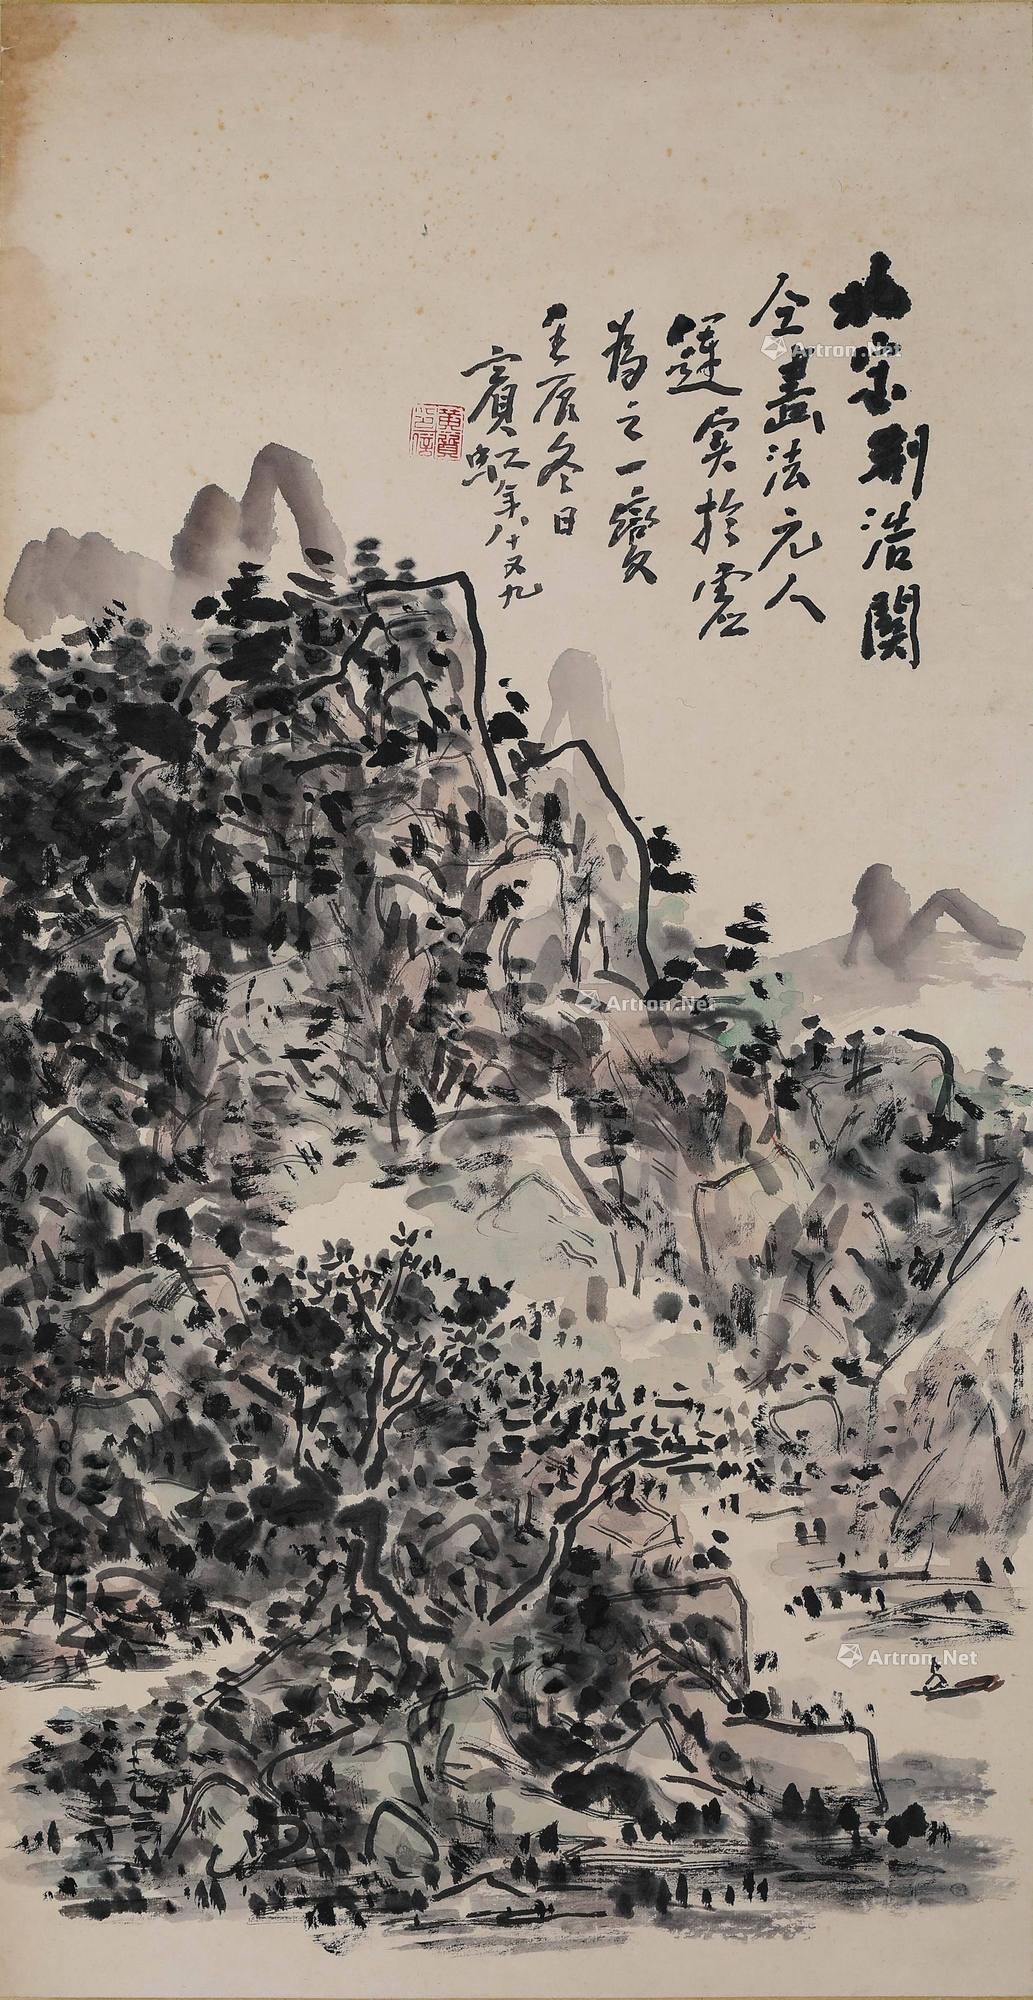 北宋荆浩關
仝畫法元人
運實於虛
為之一變
壬辰冬日
賓虹年八十又九
Artron.Net
Artron.Net
Artron.Net